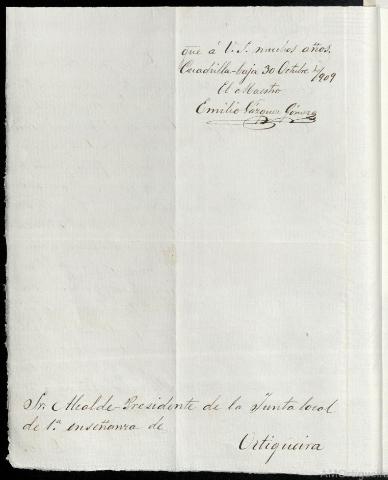 que á V. S. muchos años.
Cuadrilla-baja 30 Octubre de/1909
El Maestro
Emilio Vázquez Gómez
Sr. Alcalde-Presidente de la Junta local
de 1.ª enseñanza de
Ortigueira